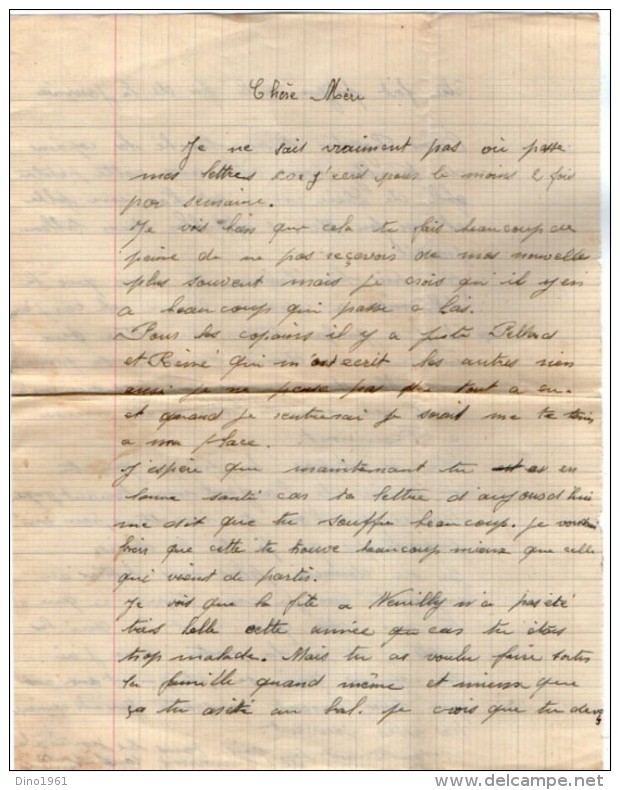 Chère Mère
Je ne sais vraiment pas où passe
mes lettres car j'ecris pour le moins 2 fois
par semaine.
Je vois bien que cela tu fais beaucoup de
peine de ne pas reçevoir de mes nouvelle
plus souvent mais je crois qu'il y en
a beaucoup qui passe a las.
Pour les copains il y a juste
et Réné qui m'ont ecrit les autres rien
aussi je ne pense pas du tout a eu.
et quand je rentrerai je serait me te
a ma place.
J'espère que maintenant tu en
bonne santé car ta lettre d'aujourd'hui
me dit que tu souffre beaucoup. Je
bien que cette te trouve beaucoup mieux que celle
qui vient de partir.
Je vois que la fête a Neuilly n'a pas été
très belle cette année car tu étais
trop malade. Mais tu as voulu faire sortir
la famille quand même et mieux que
ça tu as été au bal. je crois que tu
Dino1961
delcampe.net